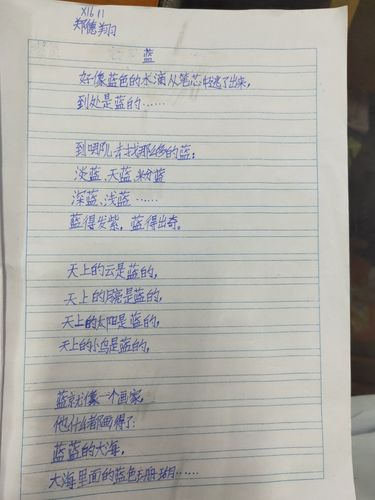 X16 11
郑德翔
蓝
好像蓝色的水滴从笔芯中逃了出来,
到处是蓝的……
到哪儿去找那么多的蓝:
淡蓝、天蓝、粉蓝
深蓝、浅蓝……
蓝得发紫,蓝得出奇。
天上的云是蓝的,
天上的月亮是蓝的,
天上的太阳是蓝的,
天上的小鸟是蓝的,
蓝就像一个画家,
他什么都画得了:
蓝蓝的大海,
大海里面的蓝色珊瑚……